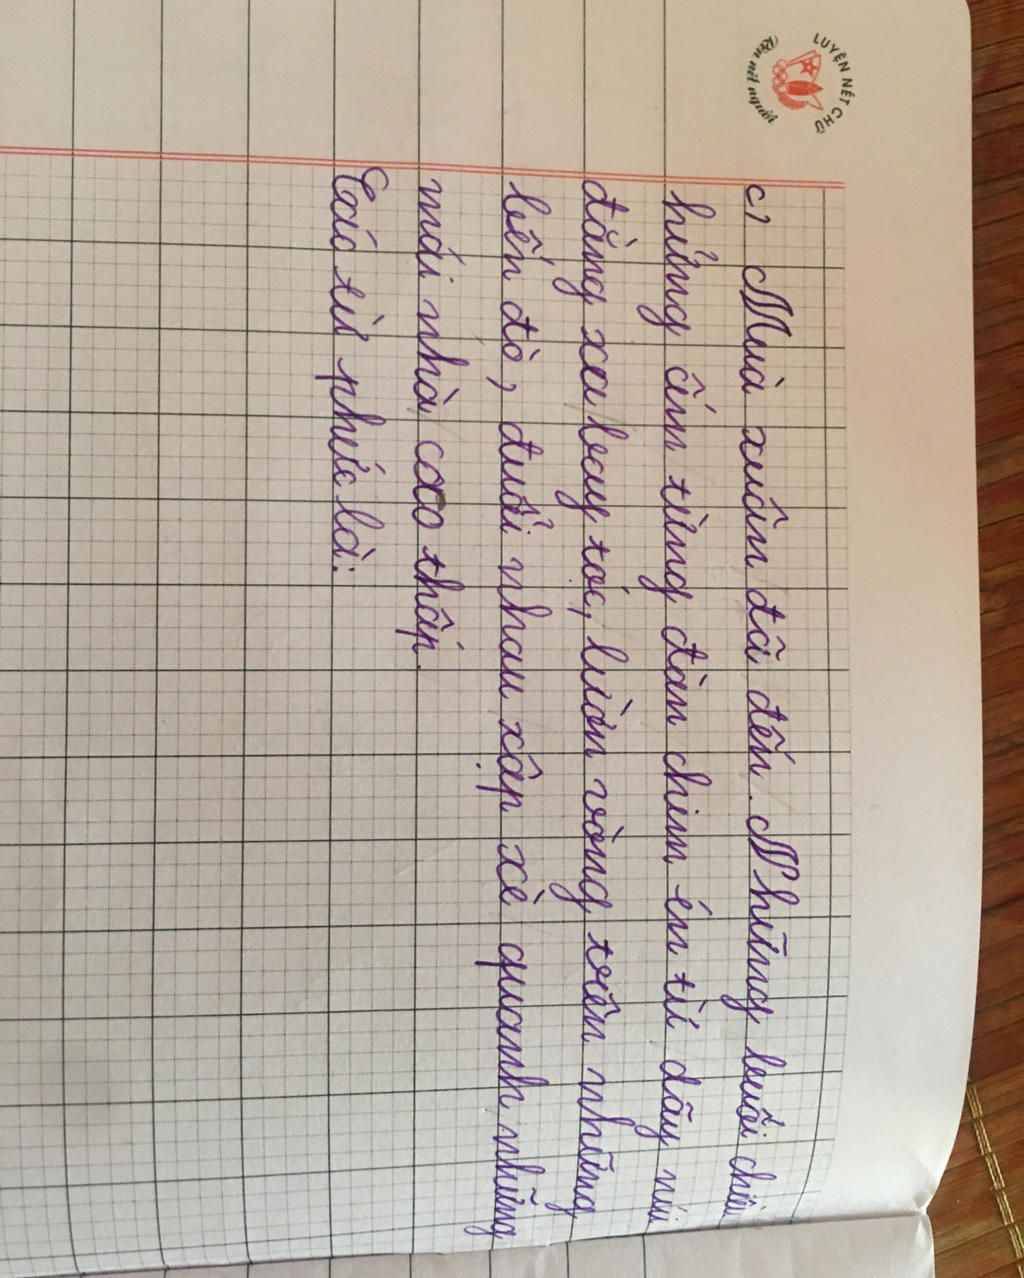 LUYỆN NÉT CHỮ
Rèn nết người
c) Muà xuân đã đến. Những buổi chiều
hửng ấm từng đàn chim én từ dãy núi
đằng xa bay tới, lượn vòng trên những
bến đò, đuổi nhau xập xè quanh những
mái nhà cao thấp.
Các từ phức là: